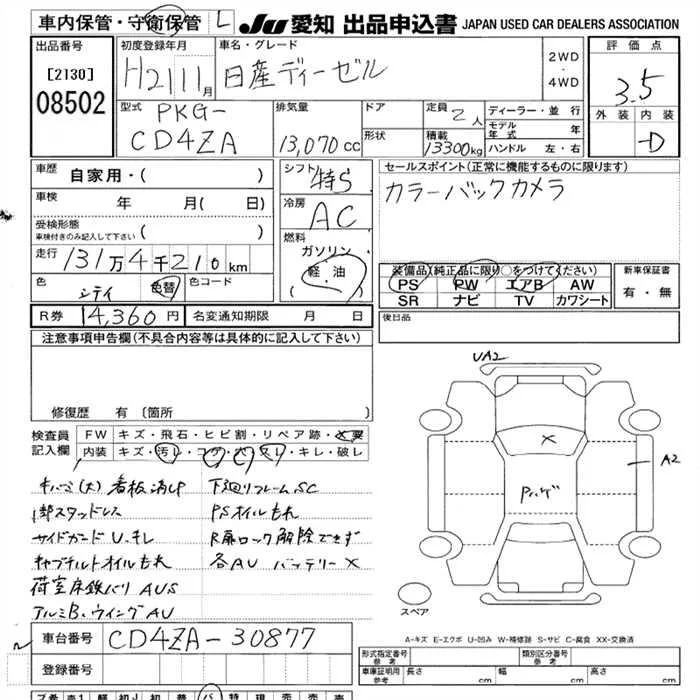 車内保管・守衛保管 L JU 愛知 出品申込書 JAPAN USED CAR DEALERS ASSOCIATION
出品番号 初度登録年月 車名・グレード 2WD・4WD 評価点
[2130] H21 11月 日産ディーゼル 3.5
08502 型式 排気量 ドア 定員 2人 ディーラー・並行 外装 内装
PKG- モデル年式 年 D
CD4ZA 13,070cc 形状 積載 13300kg ハンドル 左・右
車歴 自家用・( ) シフト 特S セールスポイント(正常に機能するものに限ります)
車検 年 月( 日) 冷房 AC カラーバックカメラ
受検形態 車検付きのみ記入して下さい ( ) 燃料
走行 131万4千210km ガソリン
軽・油 装備品(純正品に限り○をつけてください) 新車保証書
色 シティ 色替 色コード PS PW エアB AW 有・無
SR ナビ TV カワシート
R券 14,360円 名変通知期限 月 日 後日品
注意事項申告欄(不具合内容等は具体的に記入して下さい)
UA2
A2
修復歴 有(箇所
検査員 FW キズ・飛石・ヒビ割・リペア跡・
記入欄 内装 キズ・汚レ・コゲ・穴・スレ・キレ・破レ
キハミ(大) 看板消し 下廻りフレームSC
1部スタッドレス PSオイルもれ
サイドガードU.キレ R扉ロック解除できず
キャブチルトオイルもれ 各AU バッテリーX
荷室床鉄バリ AUS
アルミB.ウイングAU
Pハゲ
スペア
A-キズ E-エクボ U-凹み W-補修跡 S-サビ C-腐食 XX-交換済
車台番号 CD4ZA-30877
登録番号
形式指定番号 参考 類別区分番号 参考
車庫証明用 参考 長さ cm 幅 cm 高さ cm